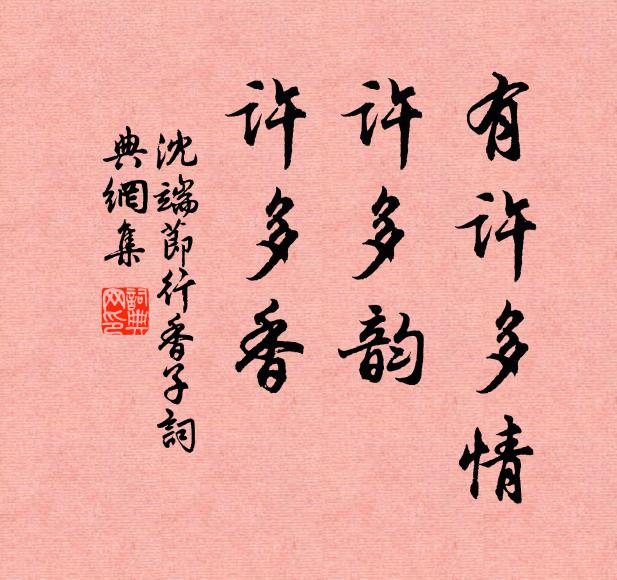 有许多情
许多韵
许多香
沈端節行香子詞
典網集
詞典网印